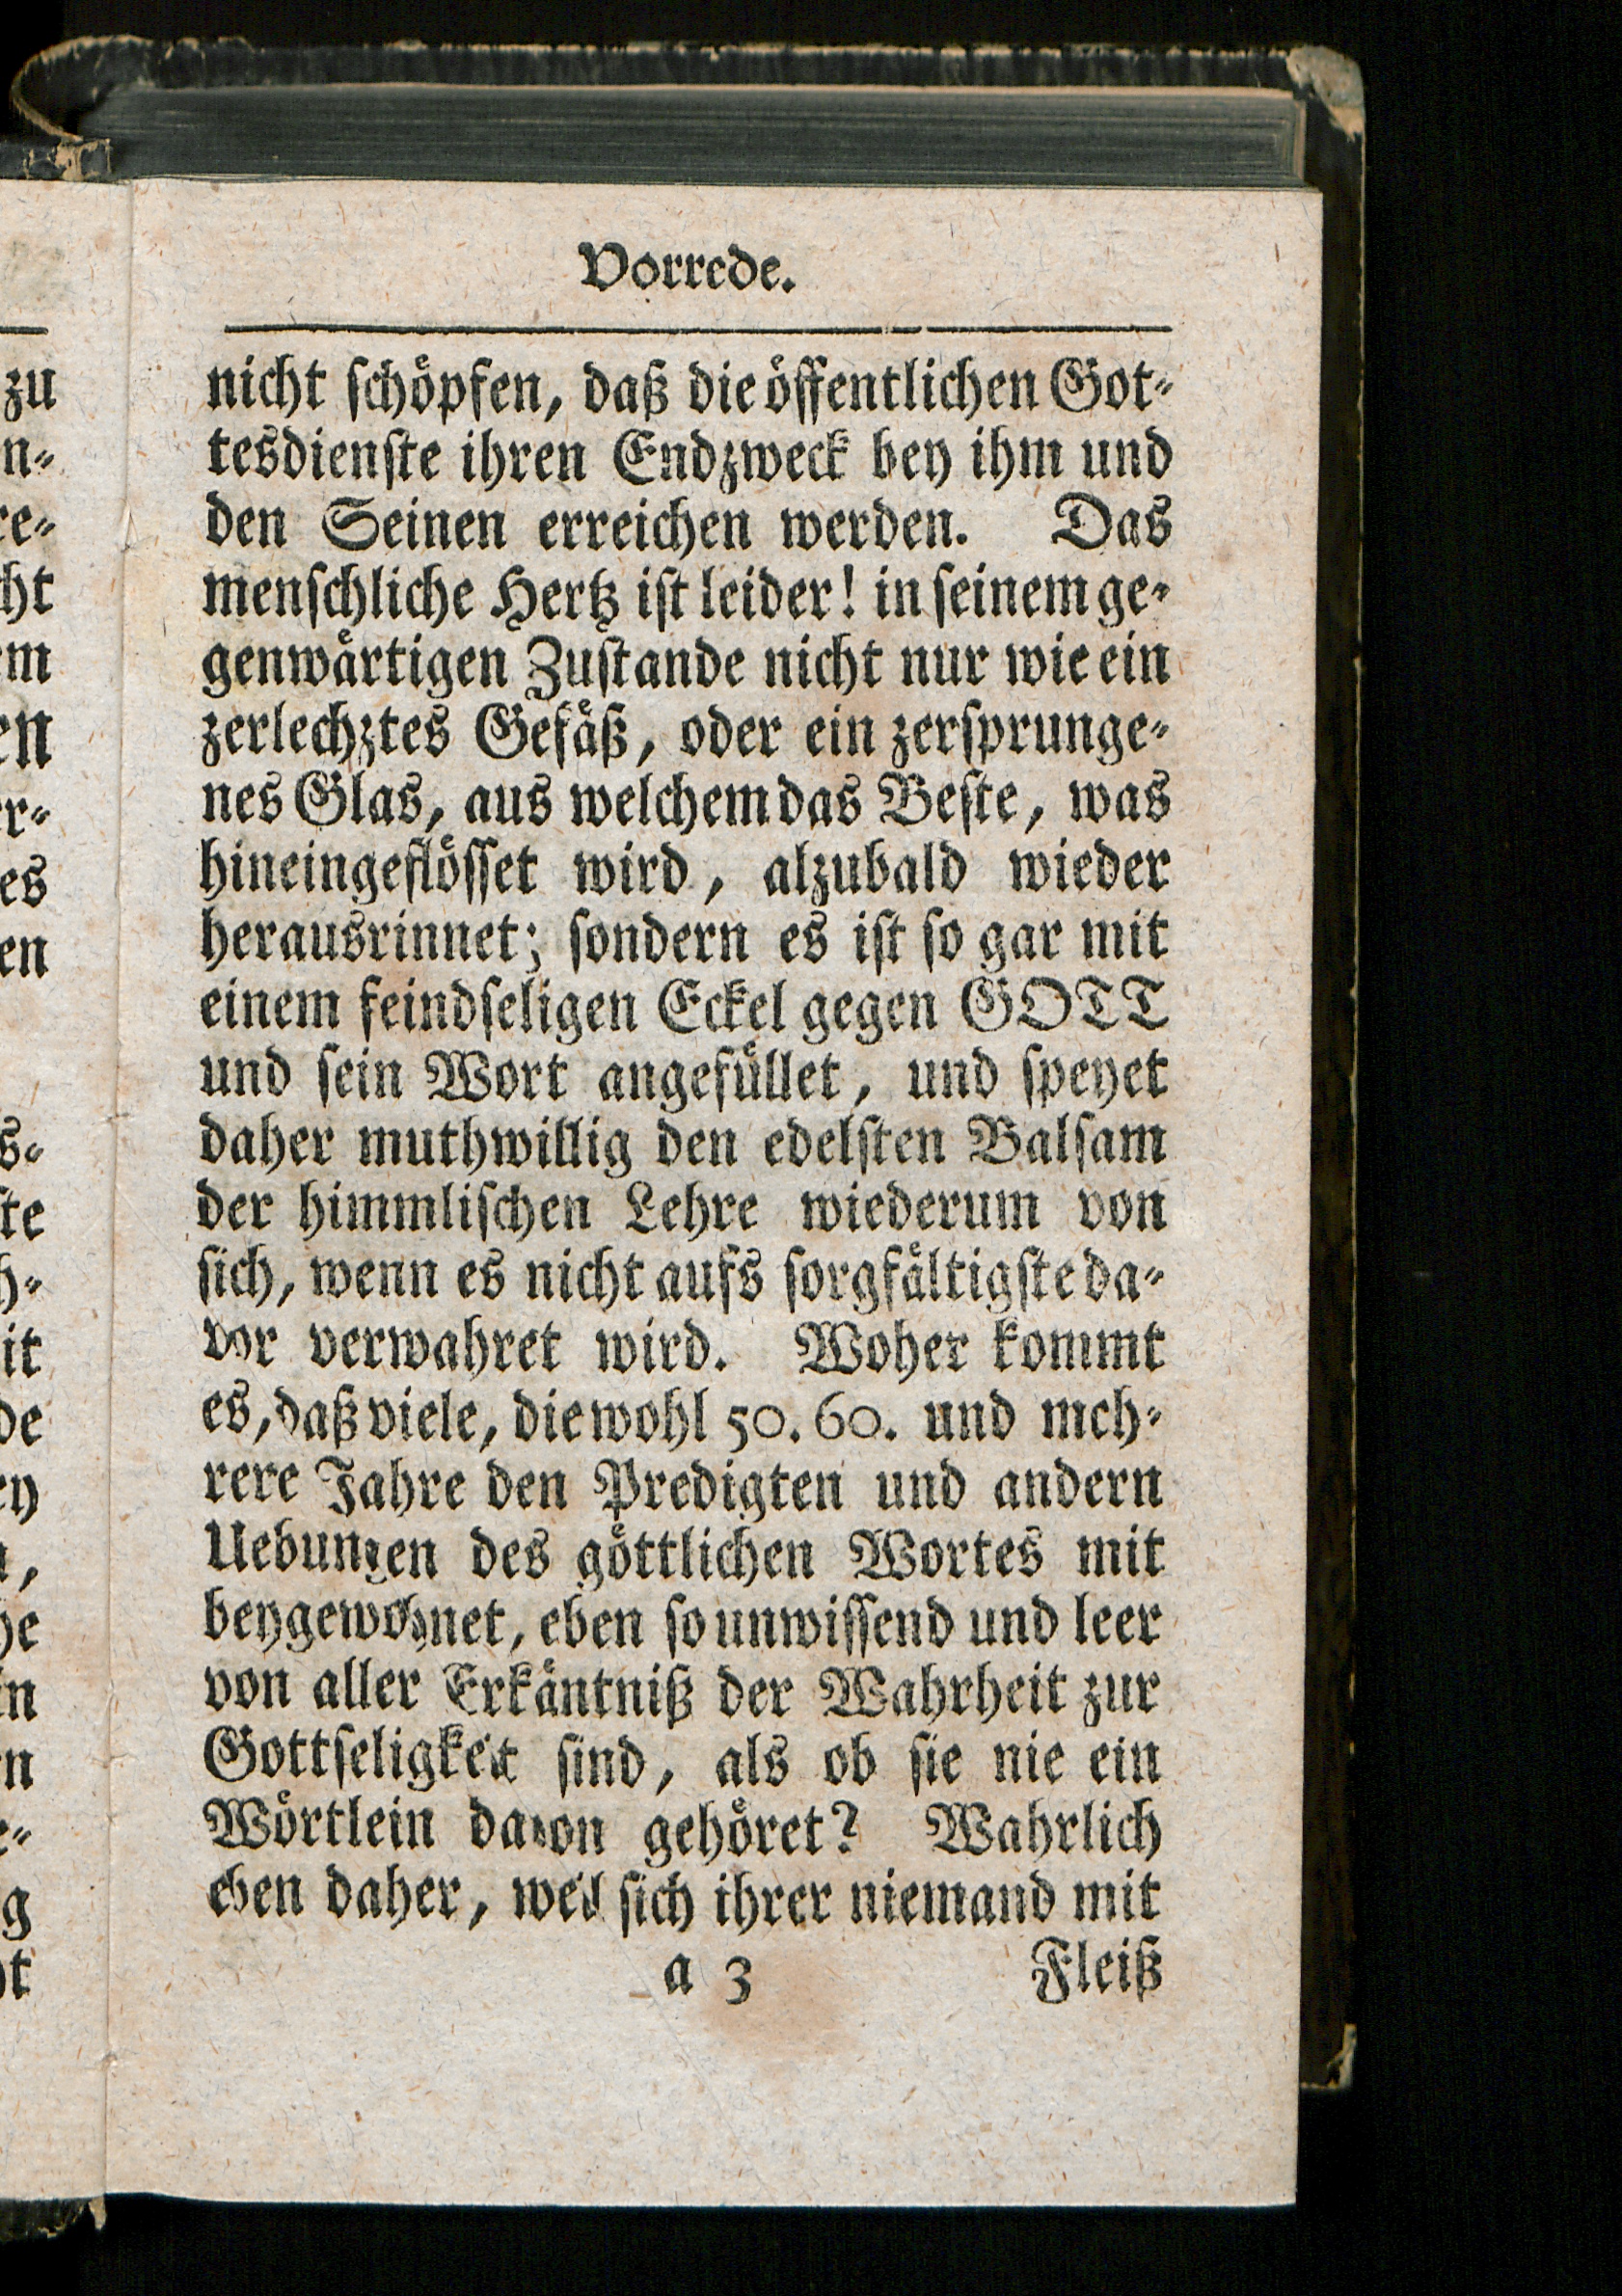 Vorrede.
nicht schöpfen, daß die öffentlichen Got-
tesdienste ihren Endzweck bey ihm und
den Seinen erreichen werden. Das
menschliche Hertz ist leider! in seinem ge-
genwärtigen Zustande nicht nur wie ein
zerlechztes Gefäß, oder ein zersprunge-
nes Glas, aus welchem das Beste, was
hineingeflösset wird, alzubald wieder
herausrinnet; sondern es ist so gar mit
einem feindseligen Eckel gegen GOTT
und sein Wort angefüllet, und speyet
daher muthwillig den edelsten Balsam
der himmlischen Lehre wiederum von
sich, wenn es nicht aufs sorgfältigste da-
vor verwahret wird. Woher kommt
es, daß viele, die wohl 50. 60. und meh-
rere Jahre den Predigten und andern
Uebungen des göttlichen Wortes mit
beygewohnet, eben so unwissend und leer
von aller Erkäntniß der Wahrheit zur
Gottseligkeit sind, als ob sie nie ein
Wörtlein davon gehöret? Wahrlich
eben daher, weil sich ihrer niemand mit
a 3 Fleiß